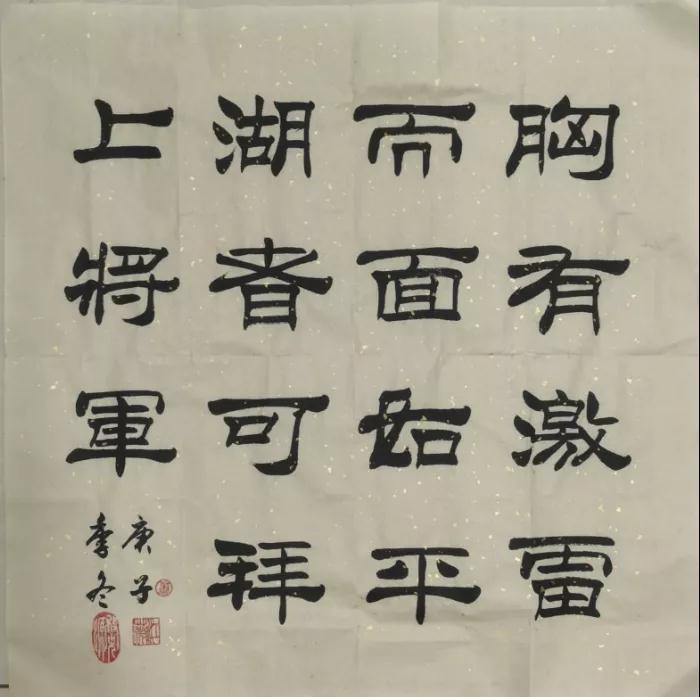 胸有激雷
而面如平
湖者可拜
上將軍
庚子
季冬